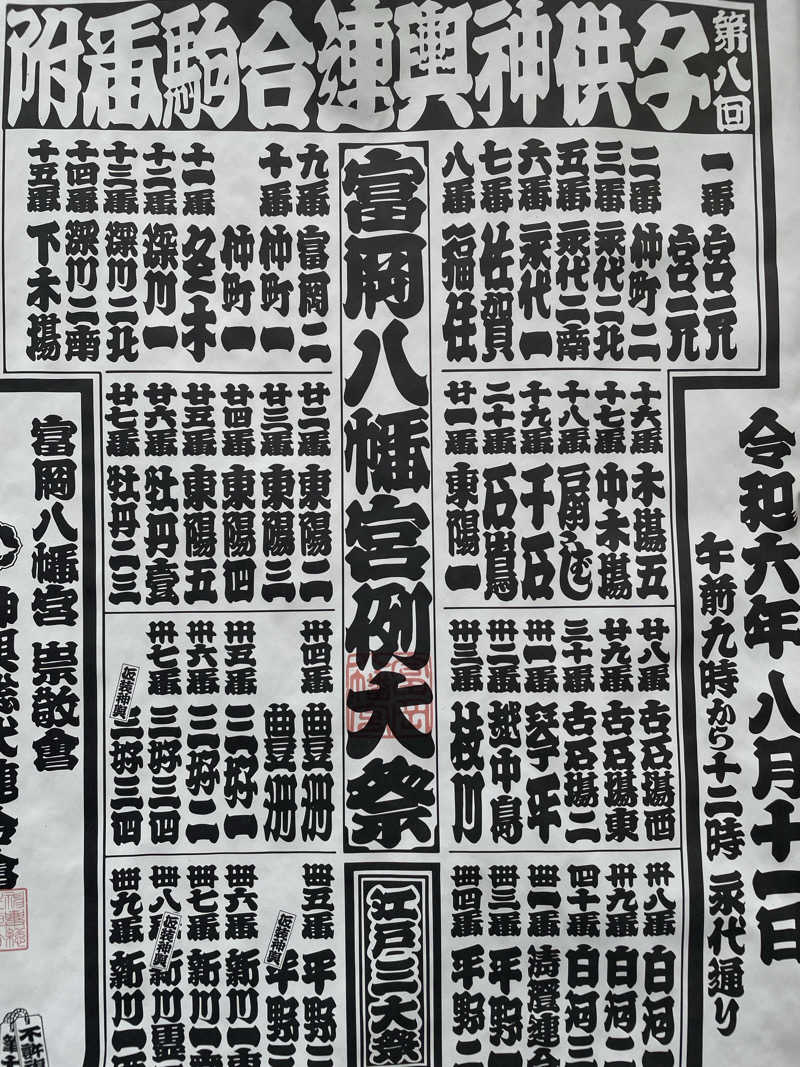 第八回
子供神輿連合駒番附
令和六年 八月十一日
午前九時から十二時 永代通り
一番 宮元
宮元
二番 仲町二
三番 永代二北
五番 永代二南
六番 永代一
七番 佐賀
八番 福住
富岡八幡宮例大祭
江戸三大祭
九番 富岡二
十番 仲町一
仲町一
十一番 冬木
十二番 深川一
十三番 深川二北
十四番 深川二南
十五番 下木場
十六番 木場五
十七番 中木場
十八番 石島
十九番 千石
二十番 石島
廿一番 東陽一
廿二番 東陽二
廿三番 東陽三
廿四番 東陽四
廿五番 東陽五
廿六番 牡丹壹
廿七番 牡丹二三
廿八番 古石場西
廿九番 古石場東
三十番 古石場二
卅一番 琴平
卅二番 越中島
卅三番 枝川
卅四番 豊洲
豊洲
卅五番 三好一
卅六番 三好二
卅七番 三好三四
仮装神輿
三好三四
卅八番 白河一
卅九番 白河二
四十番 白河三
卌一番 清澄連合
卌二番 平野一
卌四番 平野二
卌五番 平野三
仮装神輿
平野三
卌六番 新川一
卌七番 新川一
卌八番 新川一
仮装神輿
卌九番 新川一
富岡八幡宮 崇敬會
神輿総代連合會